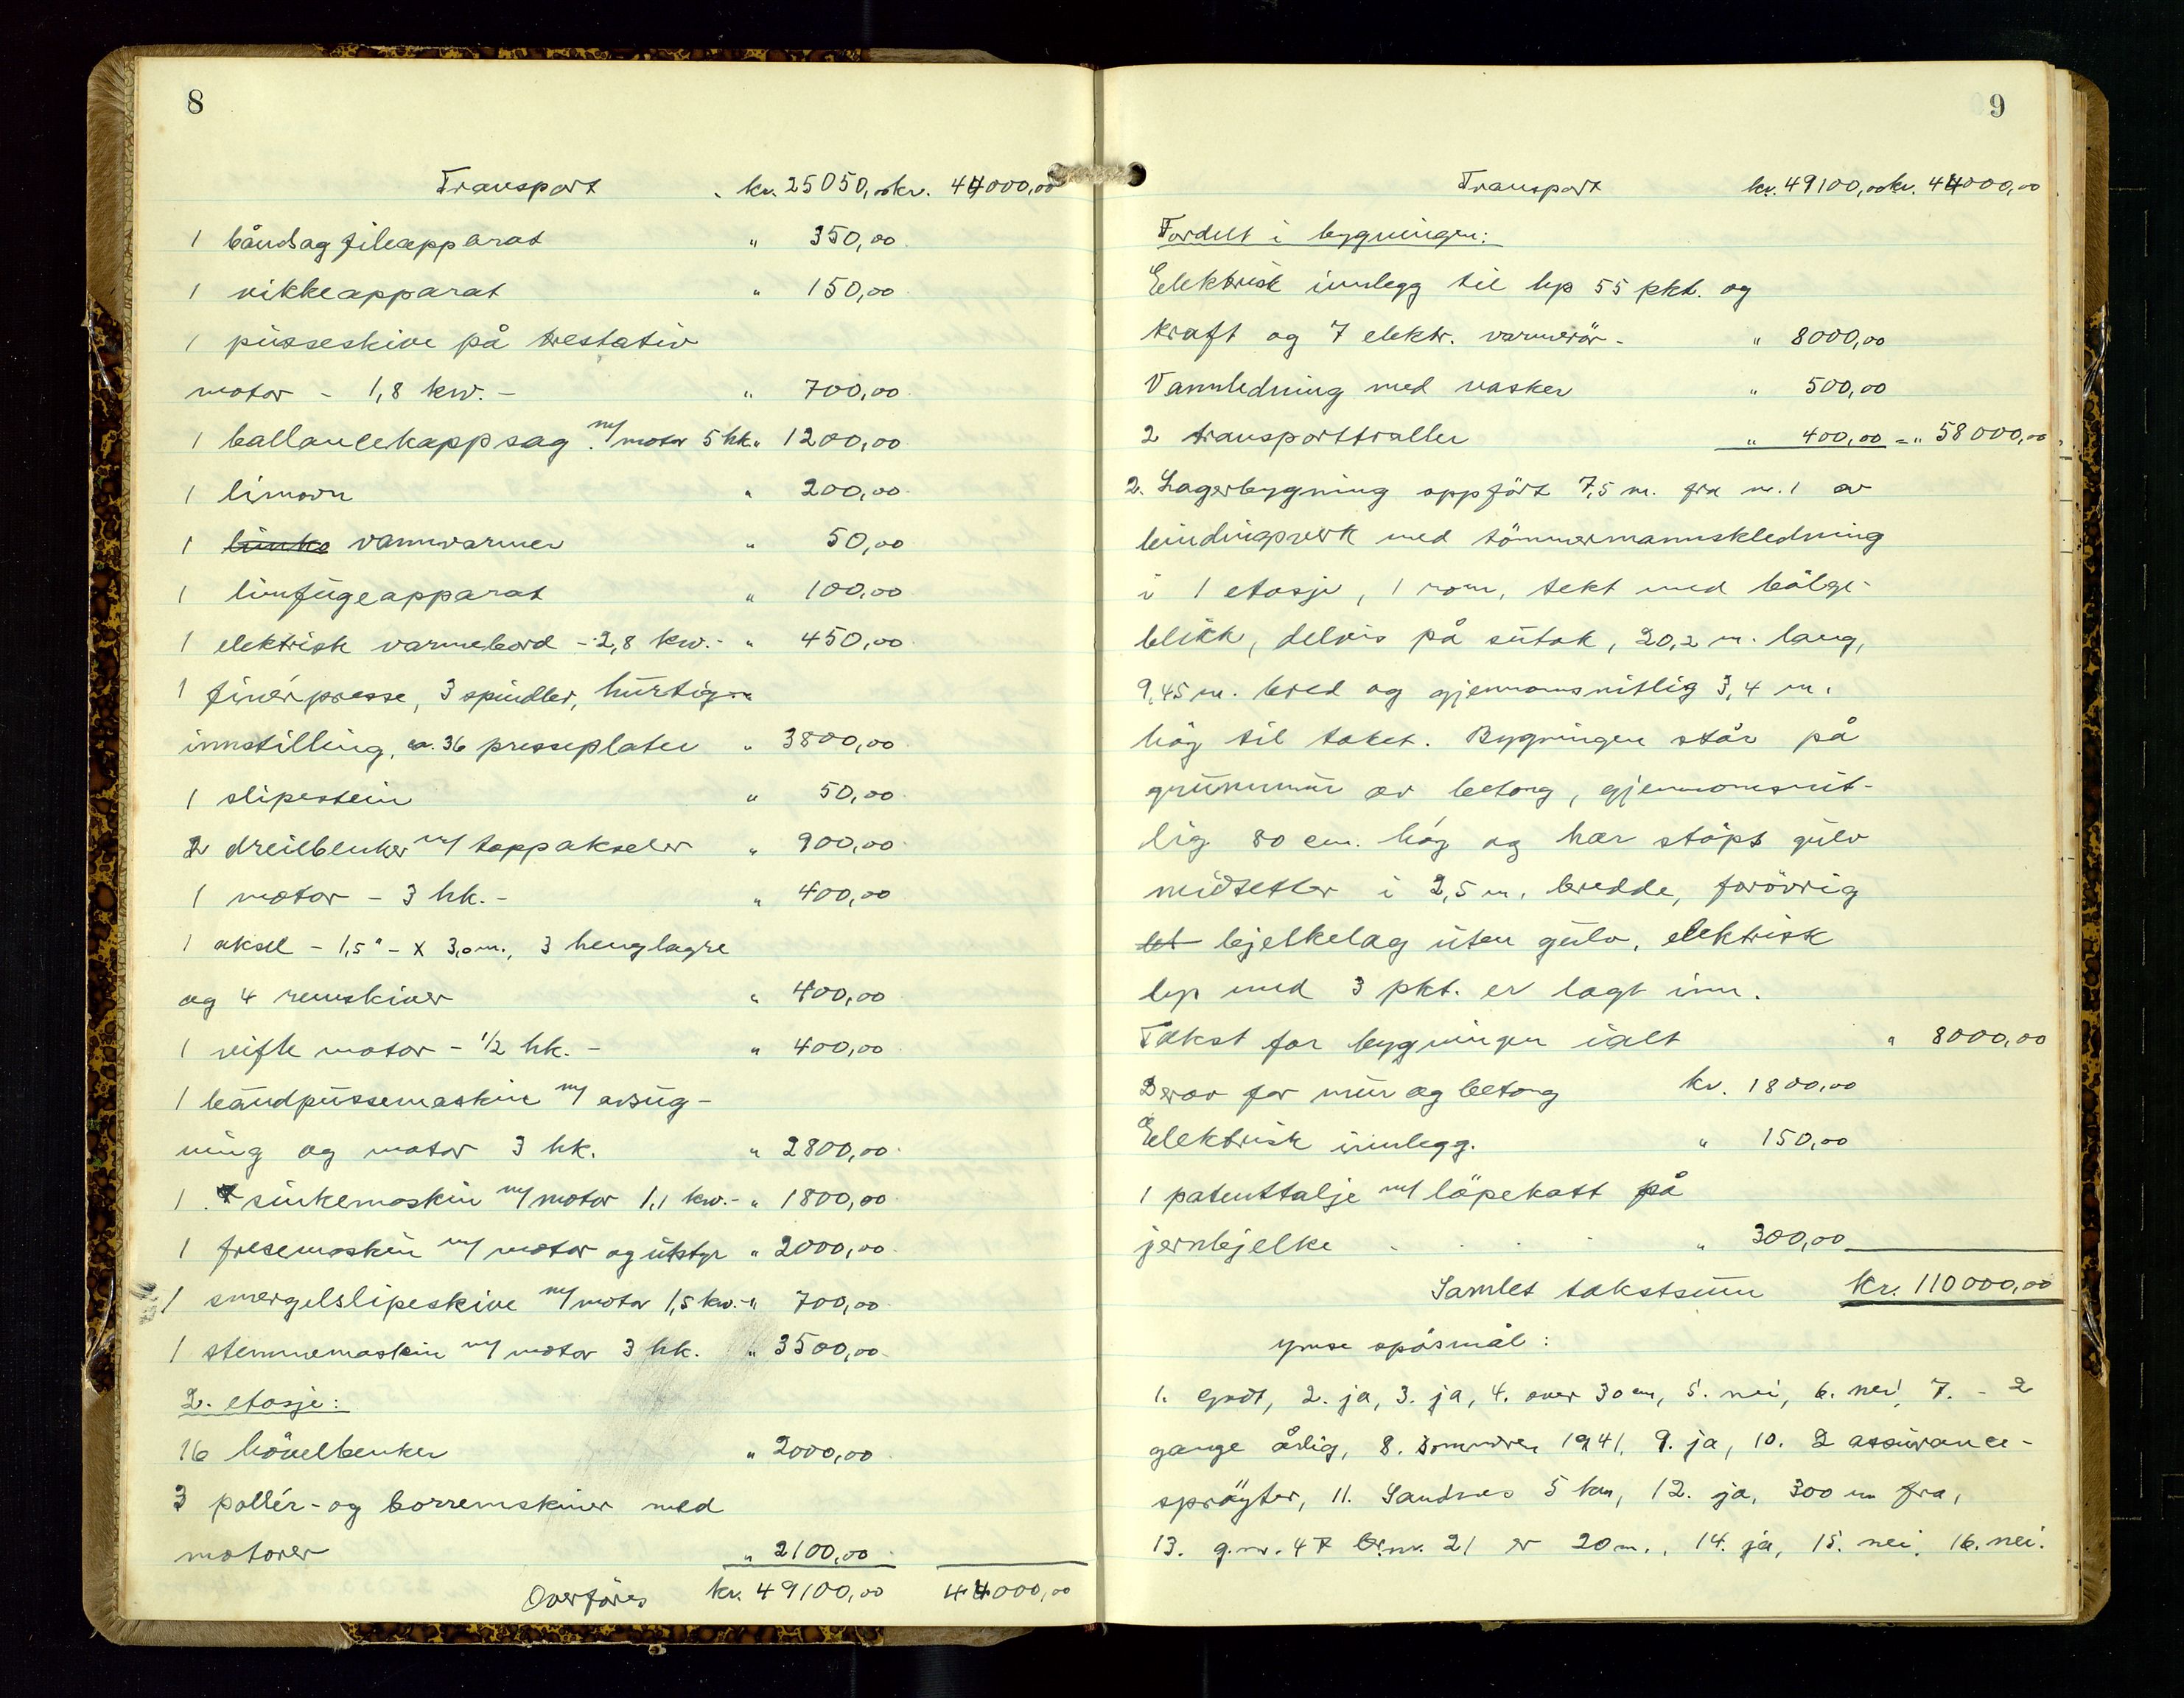 8
Transport kr. 25050,00 kr. 44000,00
1 båndsagfileapparat " 350,00
1 vikkeapparat " 150,00
1 pusseskive på trestativ
motor - 1,8 kw. - " 700,00
1 ballancekappsag m/motor 5 hk. " 1200,00
1 limovn " 200,00
1 vannvarmer " 50,00
1 limfugeapparat " 100,00
1 elektrisk varmebord - 2,8 kw. - " 450,00
1 finérpresse, 3 spindler, hurtig-
innstilling, ca. 36 presseplater " 3800,00
1 slipestein " 50,00
2 dreiebenker m/ toppakseler " 900,00
1 motor - 3 hk. - " 400,00
1 aksel - 1,5" - x 3,0 m., 3 henglagre
og 4 remskiver " 400,00
1 vifte motor - 1/2 hk. - " 400,00
1 båndpussemaskin m/ avsug-
ning og motor 3 hk. " 2800,00
1 sinkemaskin m/motor 1,1 kw. - " 1800,00
1 fresemaskin m/ motor og utstyr " 2000,00
1 smergelslipeskive m/motor 1,5 kw. - " 700,00
1 stemmemaskin m/ motor 3 hk. " 3500,00
2. etasje:
16 hövelbenker " 2000,00
3 pollér- og borremskiner med
motorer " 2100,00
Overföres kr. 49100,00 44000,00
9
Transport kr. 49100,00 kr. 44000,00
Fordelt i bygningen:
Elektrisk innlegg til lys 55 pkt. og
kraft og 7 elektr. varmerör - " 8000,00
Vannledning med vasker " 500,00
2 transporttraller " 400,00 = " 58000,00
2. Lagerbygning oppfört 7,5 m. fra nr. 1 av
bindingsverk med tömmermannskledning
i 1 etasje, 1 rom, tekt med bölge-
blikk, delvis på sutak, 20,2 m. lang,
9,45 m. bred og gjennomsnitlig 3,4 m.
hög til taket. Bygningen står på
grunnmur av betong, gjennomsnit-
lig 80 cm. hög og har stöpt gulv
midtetter i 2,5 m. bredde, forövrig
bjelkelag uten gulv, elektrisk
lys med 3 pkt. er lagt inn.
Takst for bygningen ialt " 8000,00
Derav for mur og betong kr. 1800,00
Elektrisk innlegg. " 150,00
1 patenttalje m/ löpekatt på
jernbjelke . . . . " 300,00
Samlet takstsum Kr. 110000,00
Ymse spösmål:
1. Godt, 2. ja, 3. ja, 4. over 30 cm, 5. nei, 6. nei, 7. - 2
gange årlig, 8. sommeren 1941, 9. ja, 10. 2 assurance-
spröyter, 11. Sandnes 5 km, 12. ja, 300 m fra,
13. g.nr. 47 br.nr. 21 er 20 m., 14. ja, 15. nei, 16. nei.